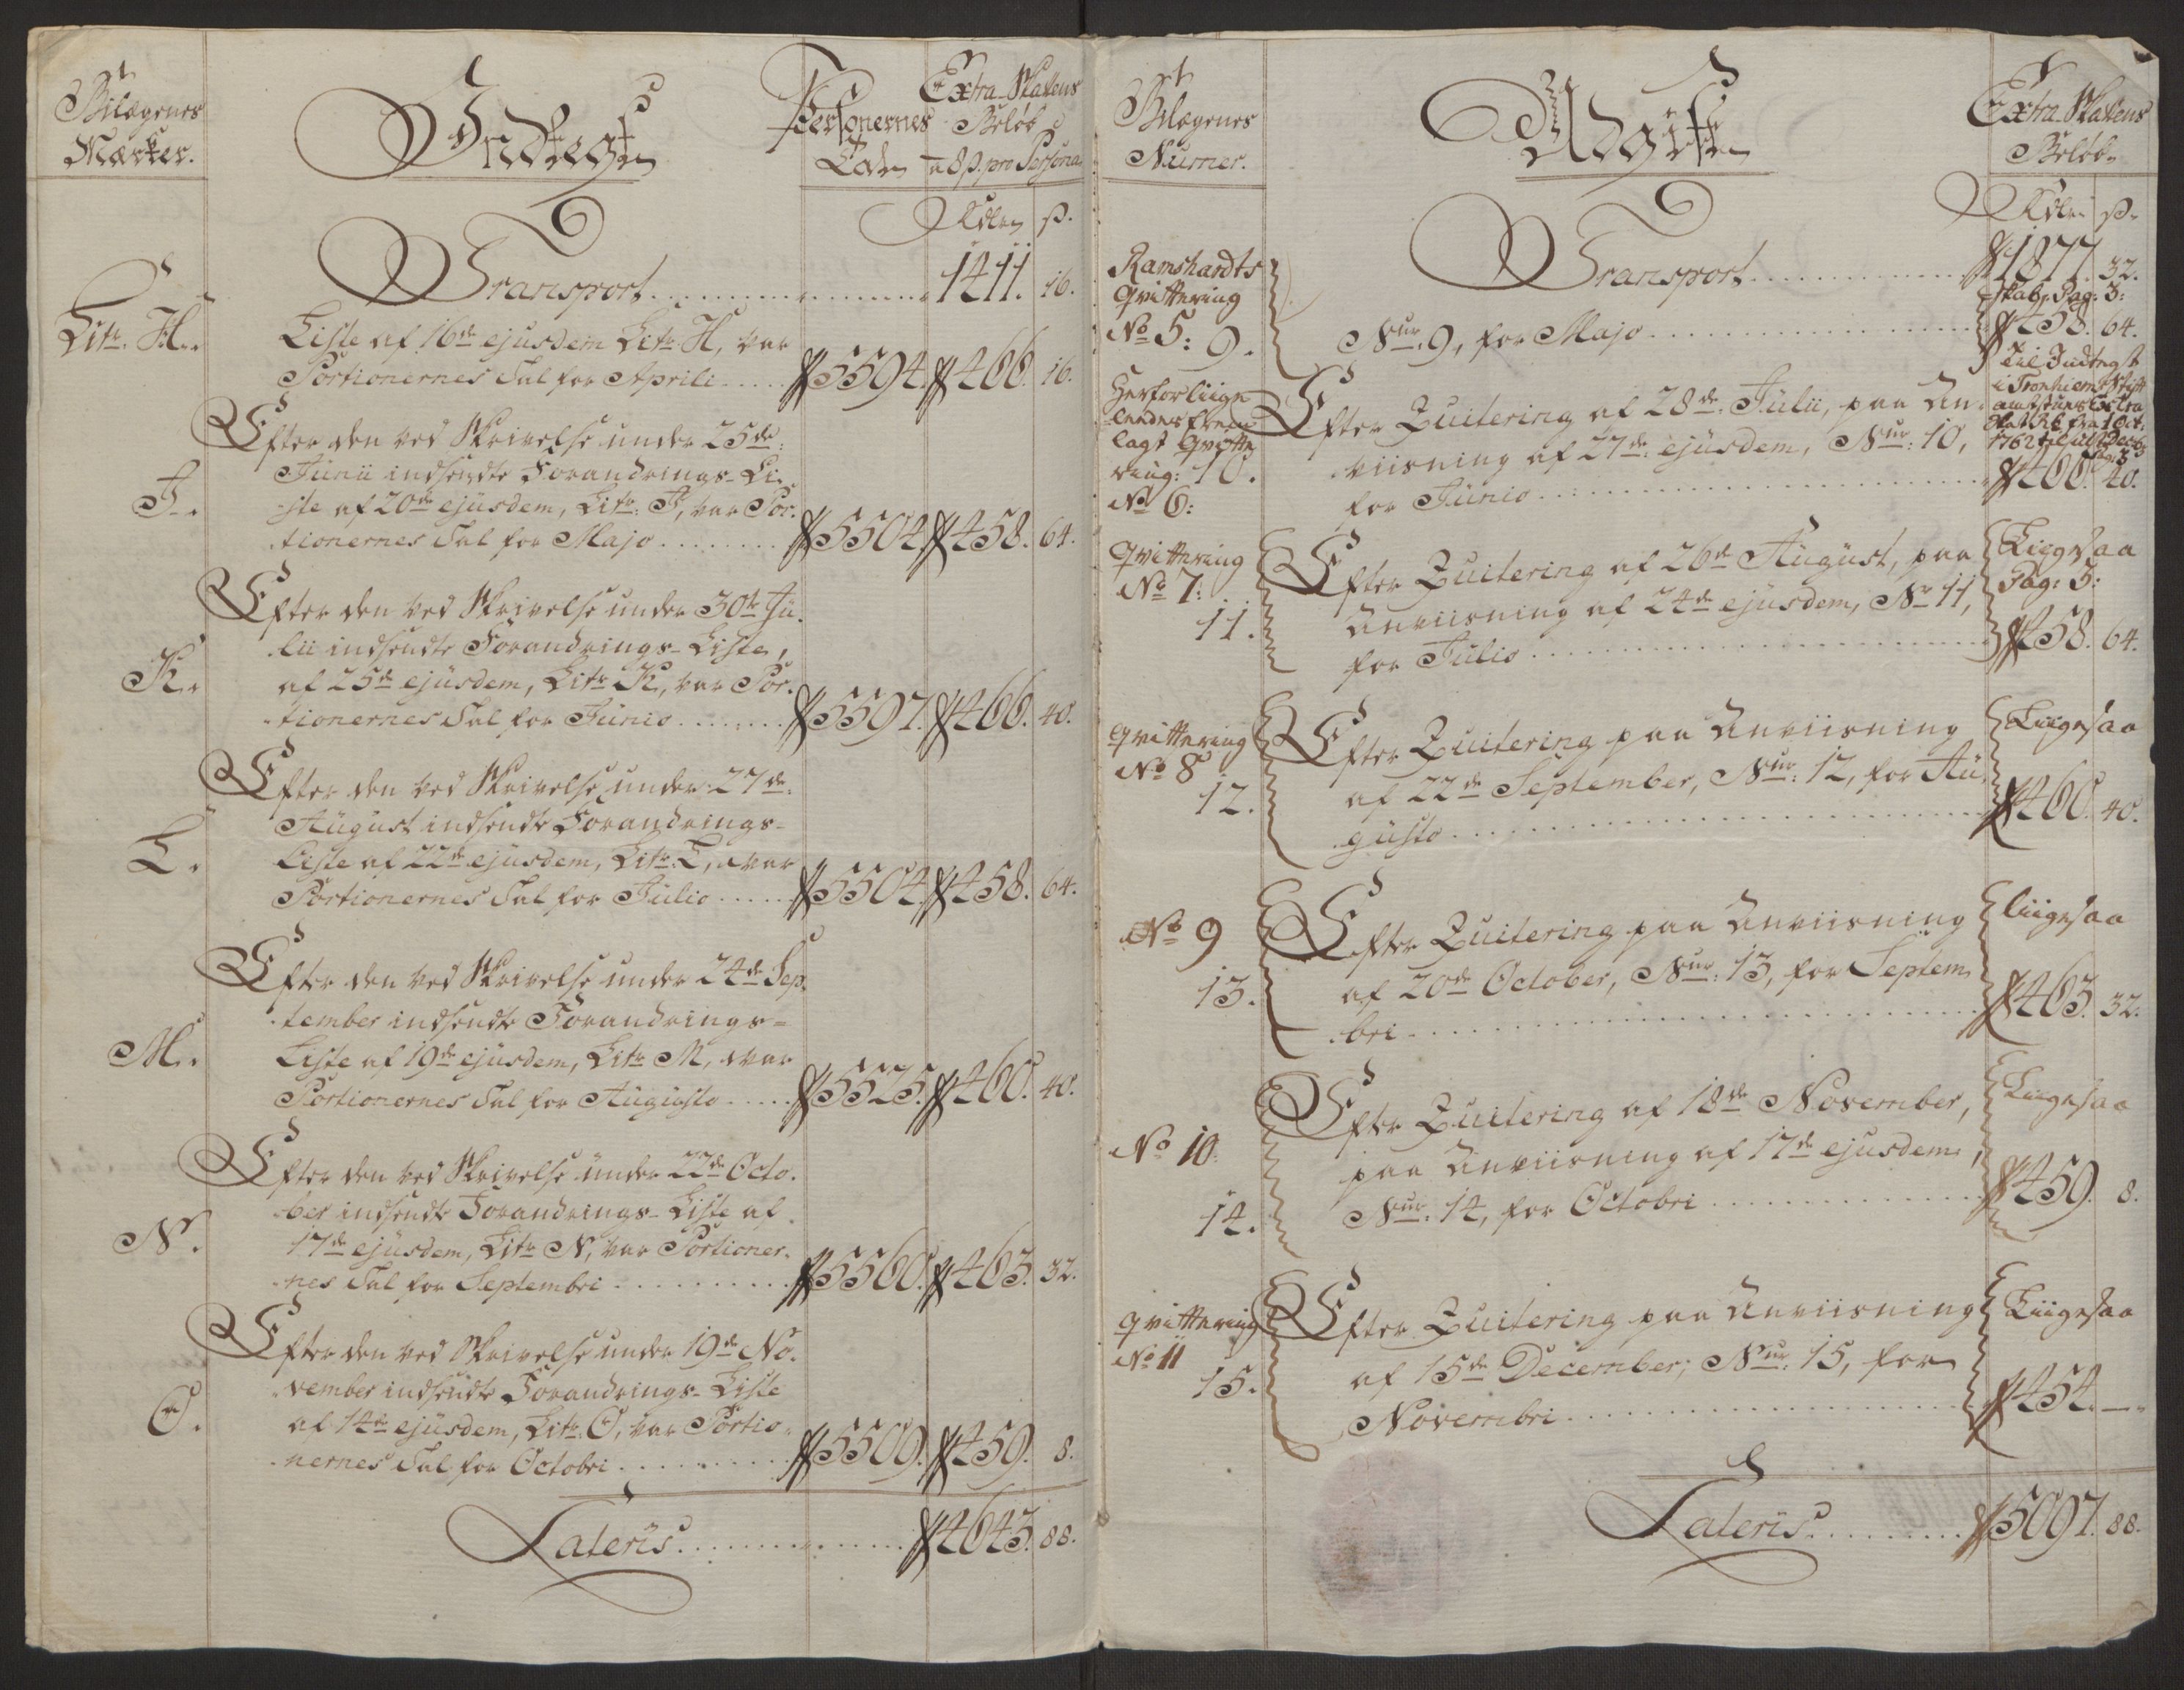 Bilagenes
Mærker.
Indtegt
Personernes
Tal
Extra-Skattens
Beløb
a 8 ß. pro Persona
Rdlr ß.
Transport . . . . 1411. 16.
Litr. H.
Liste af 16de ejusdem Litr: H, var
Portionernes Tal for Aprili . . . 5594. 466. 16.
Efter den ved Skrivelse under 25de
Junii indsendte Forandrings-Li-
I.
ste af 20de ejusdem, Litr: I, var Por-
tionernes Tal for Majo . . . 5504. 458. 64.
Efter den ved Skrivelse under 30te Ju-
lii indsendte Forandrings-Liste,
K.
af 25de ejusdem, Litr: K, var Por-
tionernes Tal for Junio . . . 5597. 466. 40.
Efter den ved Skrivelse under 27de
August indsendte Forandrings-
L.
Liste af 22de ejusdem, Litr: L, var
Portionernes Tal for Julio . . . 5504. 458. 64.
Efter den ved Skrivelse under 24de Sep-
tember indsendte Forandrings-
M.
Liste af 19de ejusdem, Litr: M, var
Portionernes Tal for Augusto . . . 5525. 460. 40.
Efter den ved Skrivelse under 22de Octo-
ber indsendte Forandrings-Liste af
N.
17de ejusdem, Litr: N, var Portioner-
nes Tal for Septembri . . . 5560. 463. 32.
Efter den ved Skrivelse under 19de No-
vember indsendte Forandrings-Liste
O.
af 14de ejusdem, Litr: O, var Portio-
nernes Tal for Octobri . . . 5509. 459. 8.
Lateris . . . 4643. 88.
Bilagenes
Numer.
Udgift
Extra-Skattens
Beløb
Rdlr ß.
Transport . . . 1877. 32.
Ramshardts
Qvittering
No 5: 9.
Pag: 3:
Nur. 9, for Majo . . . 458. 64.
Til Indtegt
i Tronhiems Stift
amtstues Extra
Skat R. fra 1 Oct:
1762 til ult Decbr
63
lagt Qvitte
ring: 10.
No 6:
Efter Quitering af 28de Julii, paa An-
viisning af 27de ejusdem, Nur: 10,
for Junio . . . 466. 40.
Qvittering
No 7:
11.
Efter Quitering af 26de August, paa
Anviisning af 24de ejusdem, Nr 11,
for Julio . . . 458. 64.
Liigesaa
Pag: 3:
Qvittering
No 8
12.
Efter Quitering paa Anviisning
af 22de September, Nur: 12, for Au-
gusto . . . 460. 40.
Liigesaa
No 9
13.
Efter Quitering paa Anviisning
af 20de October, Nur: 13, for Septem-
bri . . . 463. 32.
liigesaa
No 10.
14.
Efter Quitering af 18de November,
paa Anviisning af 17de ejusdem,
Nur: 14, for Octobri . . . 459. 8.
Liigesaa
Qvittering
No 11
15.
Efter Quitering paa Anviisning
af 15de December, Nur: 15, for
Novembri . . . 454. —
Liigesaa
Lateris . . . 5097. 88.